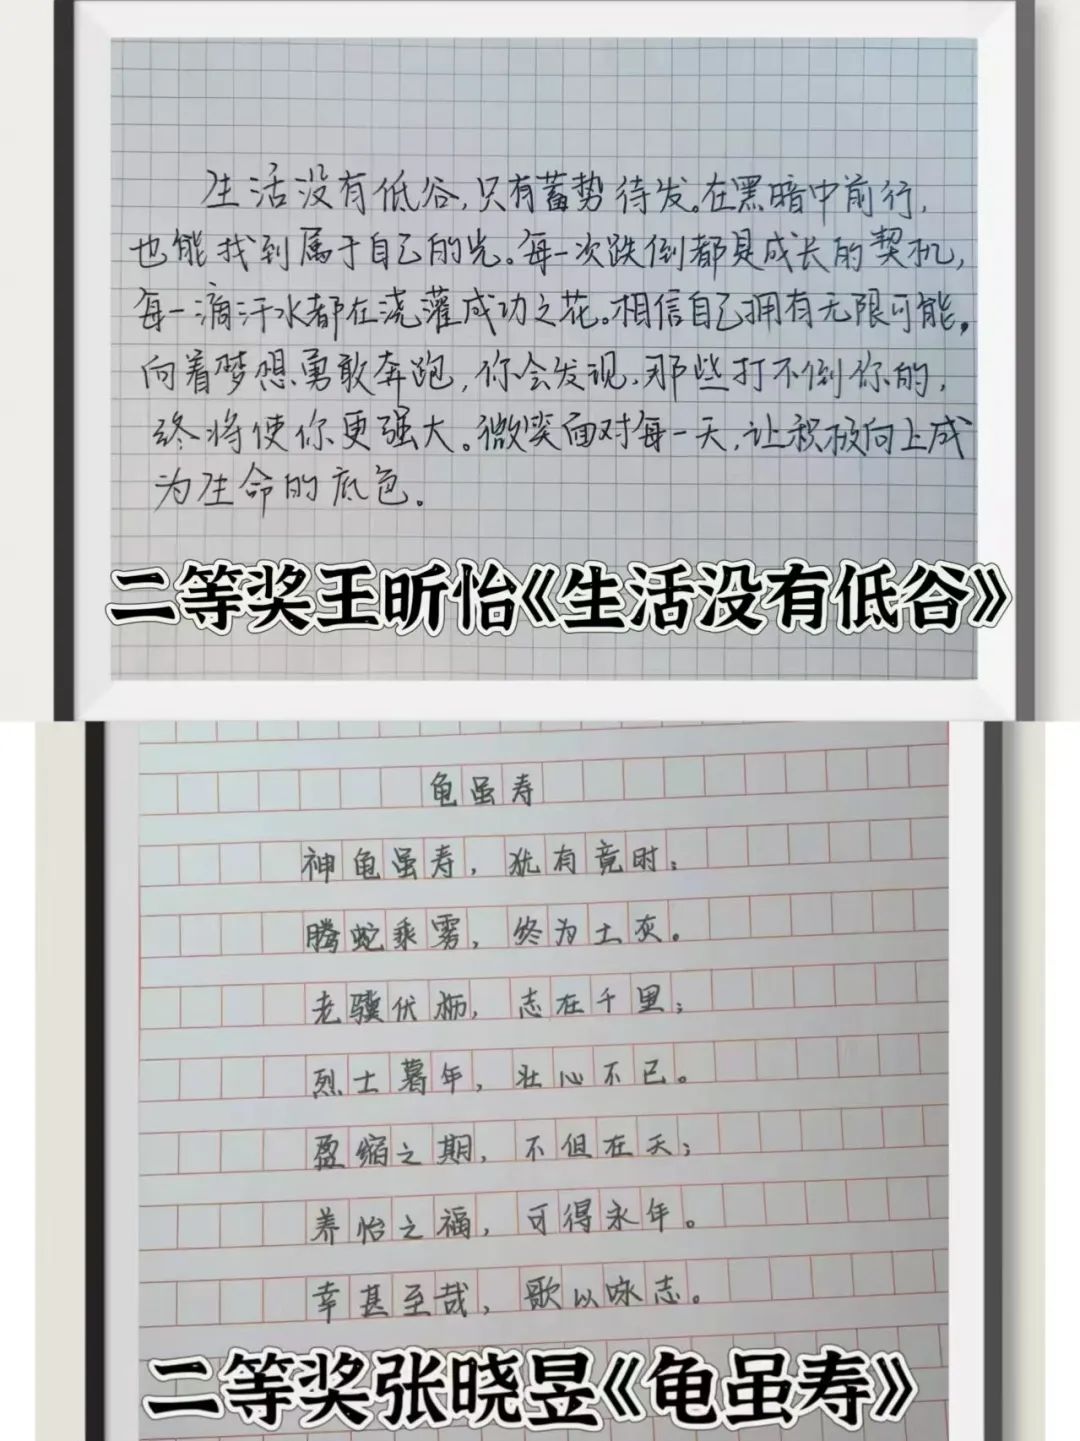 生活没有低谷,只有蓄势待发。在黑暗中前行,
也能找到属于自己的光。每一次跌倒都是成长的契机,
每一滴汗水都在浇灌成功之花。相信自己拥有无限可能,
向着梦想勇敢奔跑,你会发现,那些打不倒你的,
终将使你更强大。微笑面对每一天,让积极向上成
为生命的底色。
二等奖王昕怡《生活没有低谷》
龟虽寿
神龟虽寿,犹有竟时;
腾蛇乘雾,终为土灰。
老骥伏枥,志在千里;
烈士暮年,壮心不已。
盈缩之期,不但在天;
养怡之福,可得永年。
幸甚至哉,歌以咏志。
二等奖张晓昱《龟虽寿》